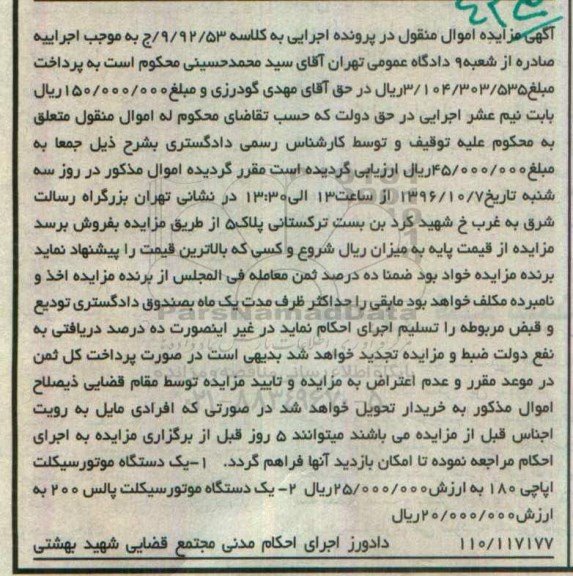 آگهی مزایده اموال منقول در پرونده اجرایی به کلاسه ۹/۹۲/۵۳/ج به موجب اجراییه
صادره از شعبه۹ دادگاه عمومی تهران آقای سید محمدحسینی محکوم است به پرداخت
مبلغ۳/۱۰۴/۳۰۳/۵۳۵ریال در حق آقای مهدی گودرزی و مبلغ۱۵۰/۰۰۰/۰۰۰ریال
بابت نیم عشر اجرایی در حق دولت که حسب تقاضای محکوم له اموال منقول متعلق
به محکوم علیه توقیف و توسط کارشناس رسمی دادگستری بشرح ذیل جمعا به
مبلغ۴۵/۰۰۰/۰۰۰ریال ارزیابی گردیده است مقرر گردیده اموال مذکور در روز سه
شنبه تاریخ۱۳۹۶/۱۰/۷ از ساعت۱۳ الی۱۳:۳۰ در نشانی تهران بزرگراه رسالت
شرق به غرب خ شهید کرد بن بست ترکستانی پلاک۵ از طریق مزایده بفروش برسد
مزایده از قیمت پایه به میزان ریال شروع و کسی که بالاترین قیمت را پیشنهاد نماید
برنده مزایده خواد بود ضمنا ده درصد ثمن معامله فی المجلس از برنده مزایده اخذ و
نامبرده مکلف خواهد بود مابقی را حداکثر ظرف مدت یک ماه بصندوق دادگستری تودیع
و قبض مربوطه را تسلیم اجرای احکام نماید در غیر اینصورت ده درصد دریافتی به
نفع دولت ضبط و مزایده تجدید خواهد شد بدیهی است در صورت پرداخت کل ثمن
در موعد مقرر و عدم اعتراض به مزایده و تایید مزایده توسط مقام قضایی ذیصلاح
اموال مذکور به خریدار تحویل خواهد شد در صورتی که افرادی مایل به رویت
اجناس قبل از مزایده می باشند میتوانند ۵ روز قبل از برگزاری مزایده به اجرای
احکام مراجعه نموده تا امکان بازدید آنها فراهم گردد. ۱-یک دستگاه موتورسیکلت
اپاچی ۱۸۰ به ارزش۲۵/۰۰۰/۰۰۰ریال ۲- یک دستگاه موتورسیکلت پالس ۲۰۰ به
ارزش۲۰/۰۰۰/۰۰۰ریال
۱۱۰/۱۱۷۱۷۷ دادورز اجرای احکام مدنی مجتمع قضایی شهید بهشتی
ParsNamadData